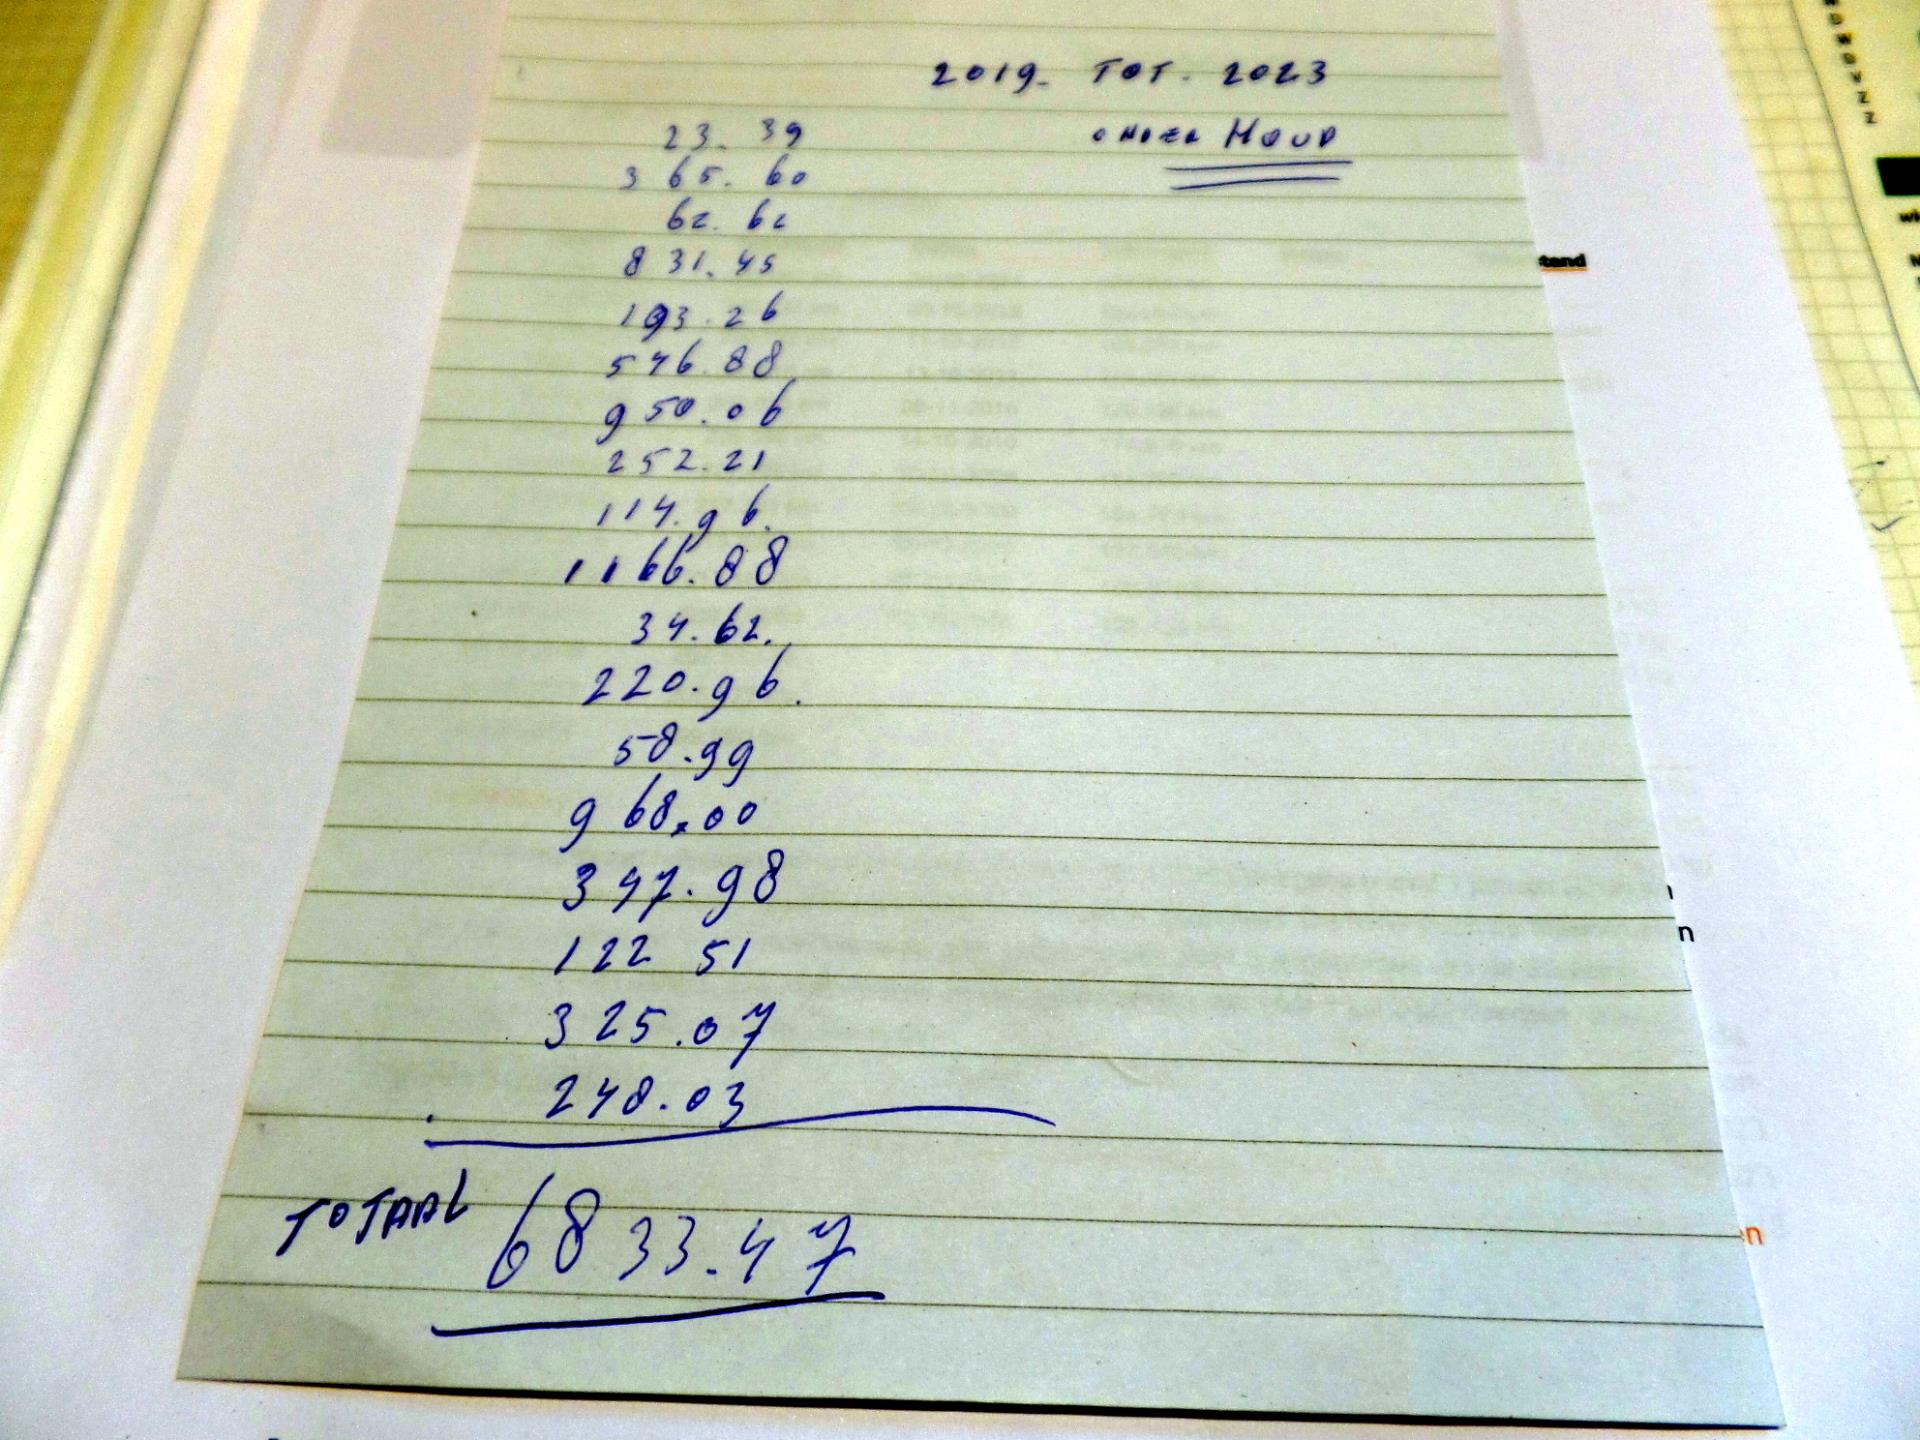 2019- TOT. 2023
23.39
ONDER HOUD
365.60
62.62
831.45
193.26
546.88
950.06
252.21
114.96.
1166.88
34.62.
220.96.
58.99
968.00
347.98
122 51
325.07
248.03
TOTAAL 6833.47
tand
n
n
en